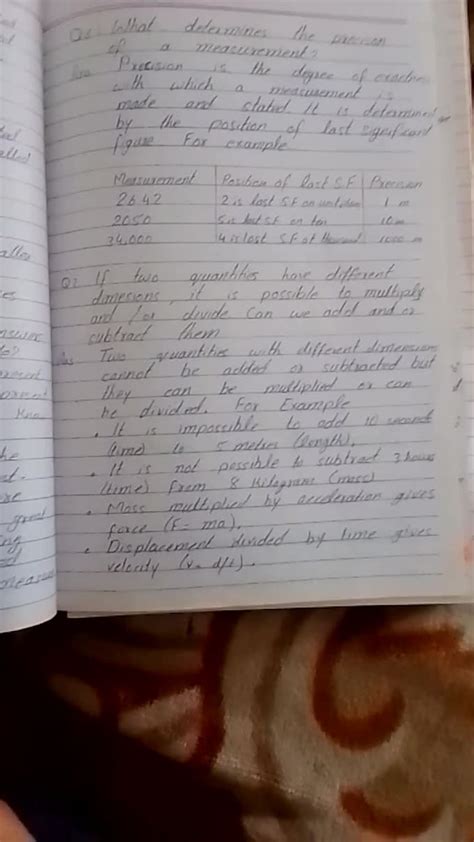 Q1 What determines the precision
of a measurement?
Ans Precision is the degree of exactness
with which a measurement is
made and stated. It is determined
by the position of last significant
figure For example
Measurement Position of last S.F Precision
2642 2 is last SF on unit 1 m
2050 5 is last SF on ten 10 m
34,000 4 is last SF at thousand 1000 m
Q2 If two quantities have different
dimesions, it is possible to multiply
and /or divide Can we add and or
subtract them
Ans Two quantities with different dimensions
cannot be added or subtracted but
they can be multiplied or can
be divided. For Example
• It is impossible to add 10 seconds
(time) to 5 metres (length).
• It is not possible to subtract 3 hours
(time) from 8 kilograms (mass)
• Mass multiplied by acceleration gives
force (F = ma).
• Displacement divided by time gives
velocity (v = d/t).